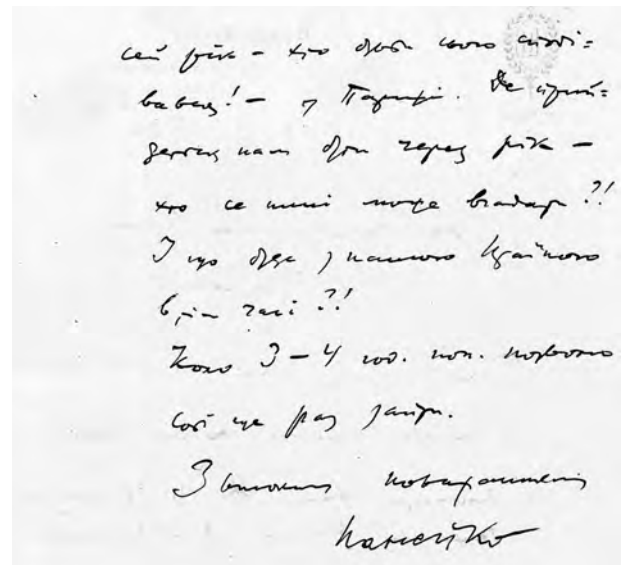 сей рік – хто був би сього споді=
вавсь! – у Парижі. Де прий=
деться нам бути через рік –
хто се нині може вгадати ?!
І що буде з нашого Країного
в тім часі ?!
Коло 3 – 4 год. поп. позволю
собі ще раз зайти.
З високим поважанням
Панейко